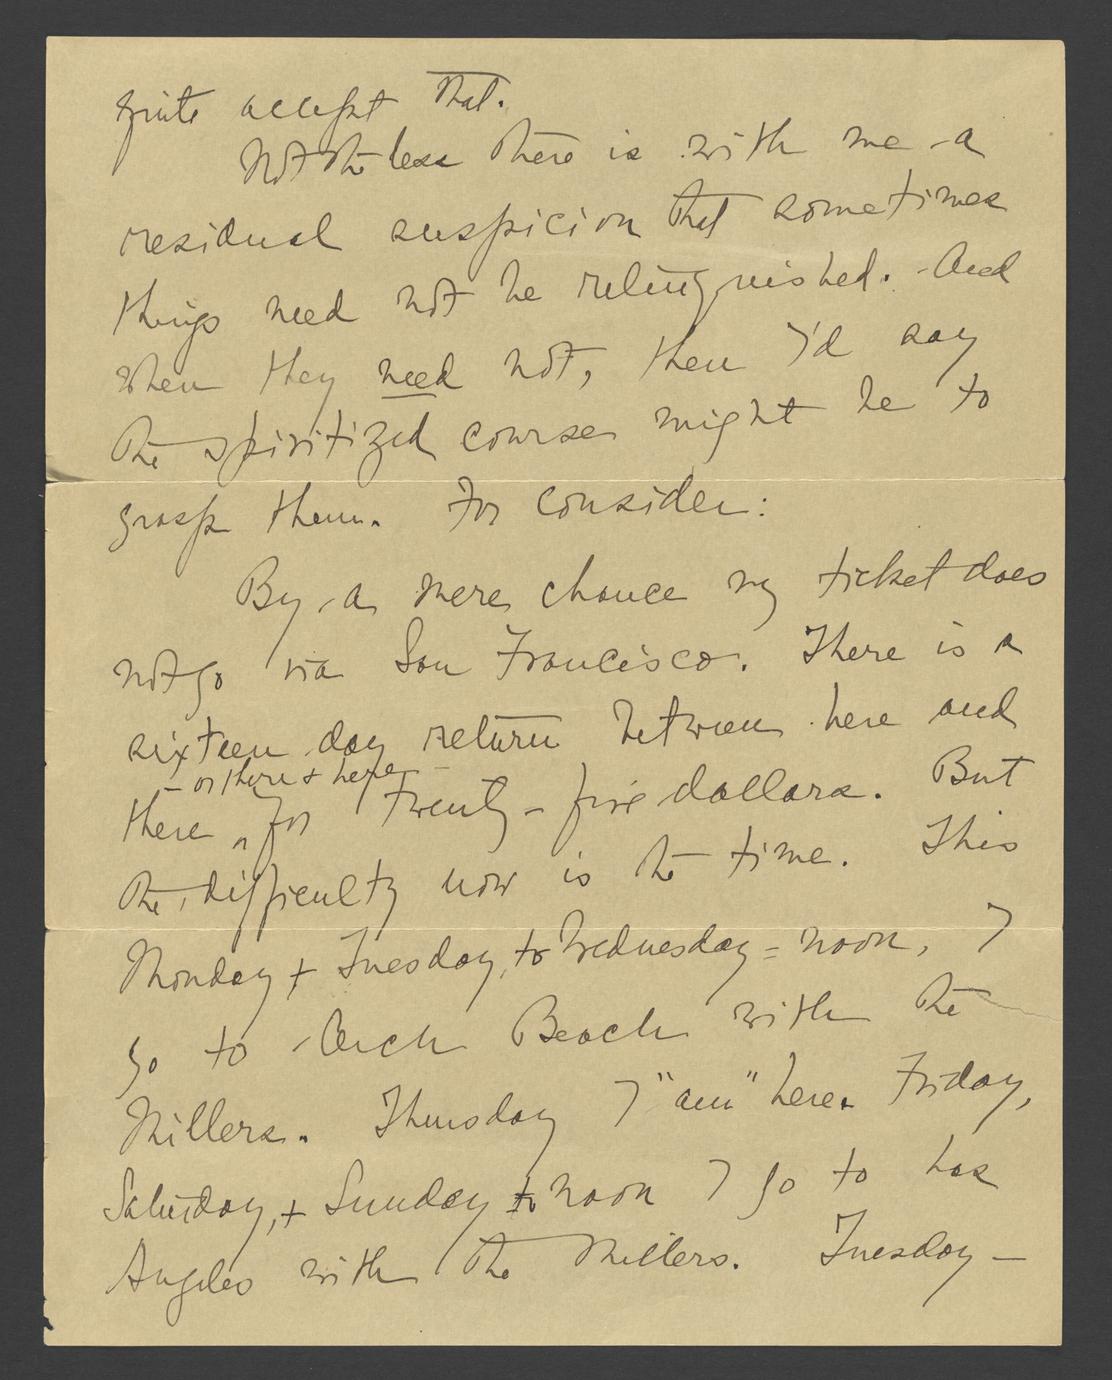 quite accept that.
Not the less there is with me a
residual suspicion that sometimes
things need not be relinquished. And
when they need not, then I'd say
the spiritized course might be to
grasp them. For consider:
By a mere chance my ticket does
not go via San Francisco. There is a
sixteen day return between here and
– or there & here –
there ‸ for twenty-five dollars. But
the difficulty now is the time. This
Monday & Tuesday, to Wednesday=noon, I
go to Arch Beach with the
Millers. Thursday I "am" here. Friday,
Saturday, & Sunday to noon I go to Los
Angeles with the Millers. Tuesday –